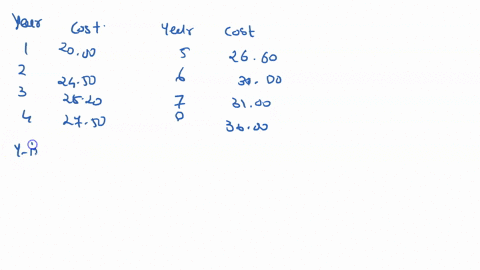 Year Cost Year Cost
1 20.00 5 26.60
2 24.50 6 30.00
3 28.20 7 31.00
4 27.50 8 36.00